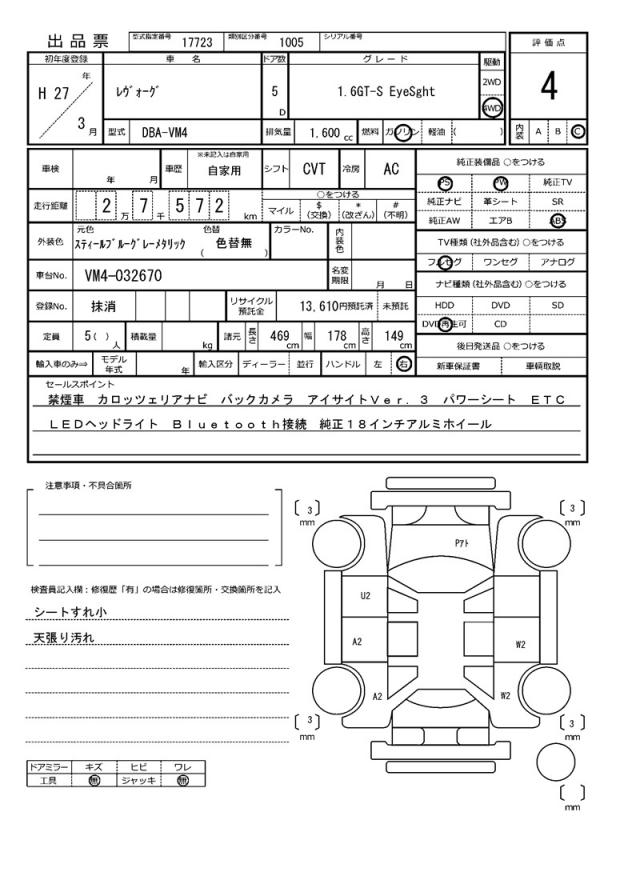 出品票 型式指定番号 17723 類別区分番号 1005 シリアル番号
評価点
4
内装 A B C
初年度登録 車名 ドア数 グレード 駆動
H 27 年 3 月
ﾚヴｫｰｸﾞ
5 D
1.6GT-S EyeSght
2WD
4WD
型式 DBA-VM4 排気量 1,600 cc 燃料 ガソリン 軽油 ( )
車検 年 月 車歴 ※未記入は自家用 自家用 シフト CVT 冷房 AC
走行距離 2 万 7 千 5 7 2 km
○をつける
マイル $(交換) *(改ざん) #(不明)
外装色 元色 ｽﾃｨｰﾙﾌﾞﾙｰｸﾞﾚｰﾒﾀﾘｯｸ 色替 ( 色替無 ) カラーNo. 内装色
車台No. VM4-032670 名変期限 月 日
登録No. 抹消 リサイクル預託金 13,610円預託済 未預託
定員 5( )人 積載量 kg 諸元 長さ 469 cm 幅 178 cm 高さ 149 cm
輸入車のみ⇒ モデル年式 年 輸入区分 ディーラー 並行 ハンドル 左 右
純正装備品 ○をつける
PS PW 純正TV
純正ナビ 革シート SR
純正AW エアB ABS
TV種類 (社外品含む) ○をつける
フルセグ ワンセグ アナログ
ナビ種類 (社外品含む) ○をつける
HDD DVD SD
DVD再生可 CD
後日発送品 ○をつける
新車保証書 車輌取説
セールスポイント
禁煙車 カロッツェリアナビ バックカメラ アイサイトＶｅｒ．３ パワーシート ＥＴＣ
ＬＥＤヘッドライト Ｂｌｕｅｔｏｏｔｈ接続 純正１８インチアルミホイール
注意事項・不具合箇所
検査員記入欄：修復歴「有」の場合は修復箇所・交換箇所を記入
シートすれ小
天張り汚れ
ドアミラー キズ ヒビ ワレ
工具 無 ジャッキ 無
[ 3 ] mm
[ 3 ] mm
Pｱﾄ
U2
A2
W2
A2
W2
[ 3 ] mm
[ 3 ] mm
[ ] mm